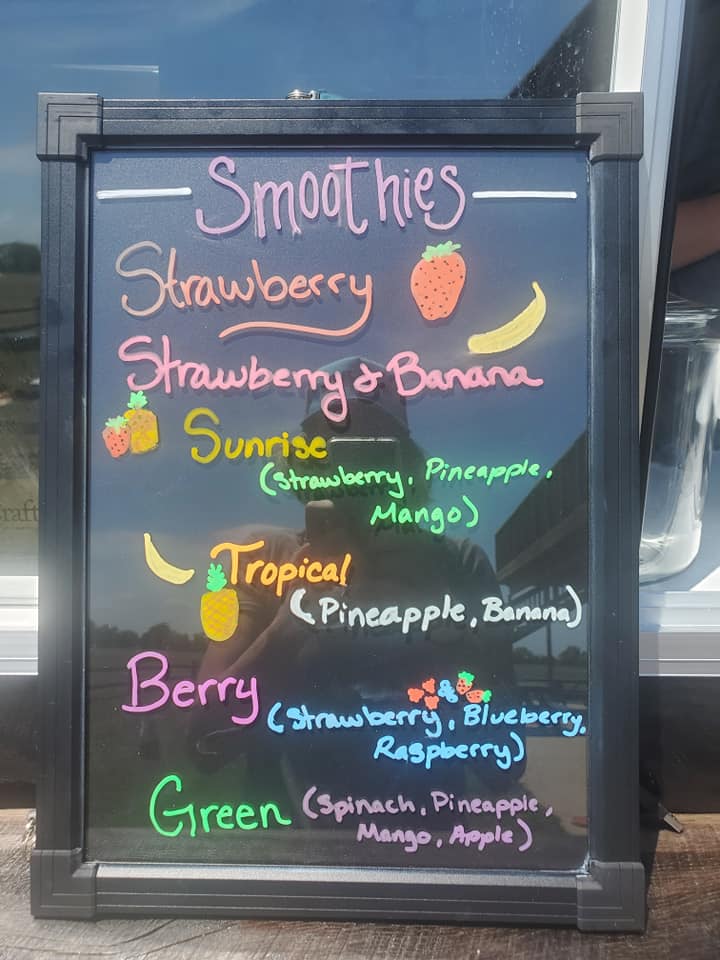 Smoothies
Strawberry
Strawberry & Banana
Sunrise
(Strawberry, Pineapple,
Mango)
Tropical
(Pineapple, Banana)
Berry
(Strawberry, Blueberry,
Raspberry)
Green (Spinach, Pineapple,
Mango, Apple)